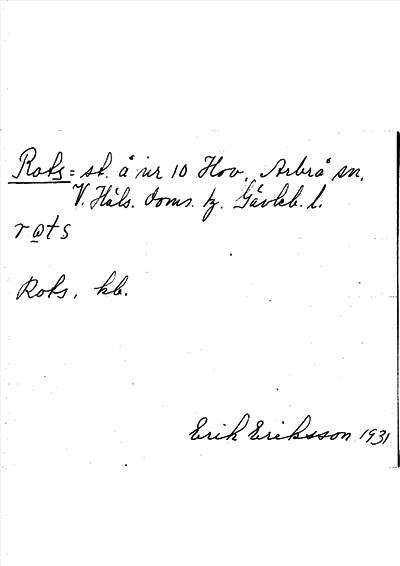 Rots = st. å nr 10 Hov, Arbrå sn.
V. Häls. doms. tg. Gävleb. l.
rots
Rots. kb.
Erik Eriksson 1931